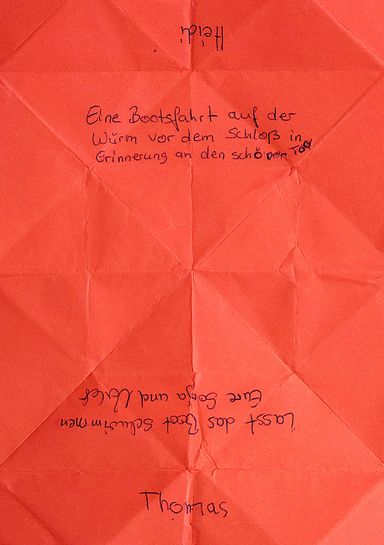 Heidi
Eine Bootsfahrt auf der
Würm vor dem Schloß in
Erinnerung an den schönen Tag
Lasst das Boot schwimmen
Eure Sonja und
Thomas